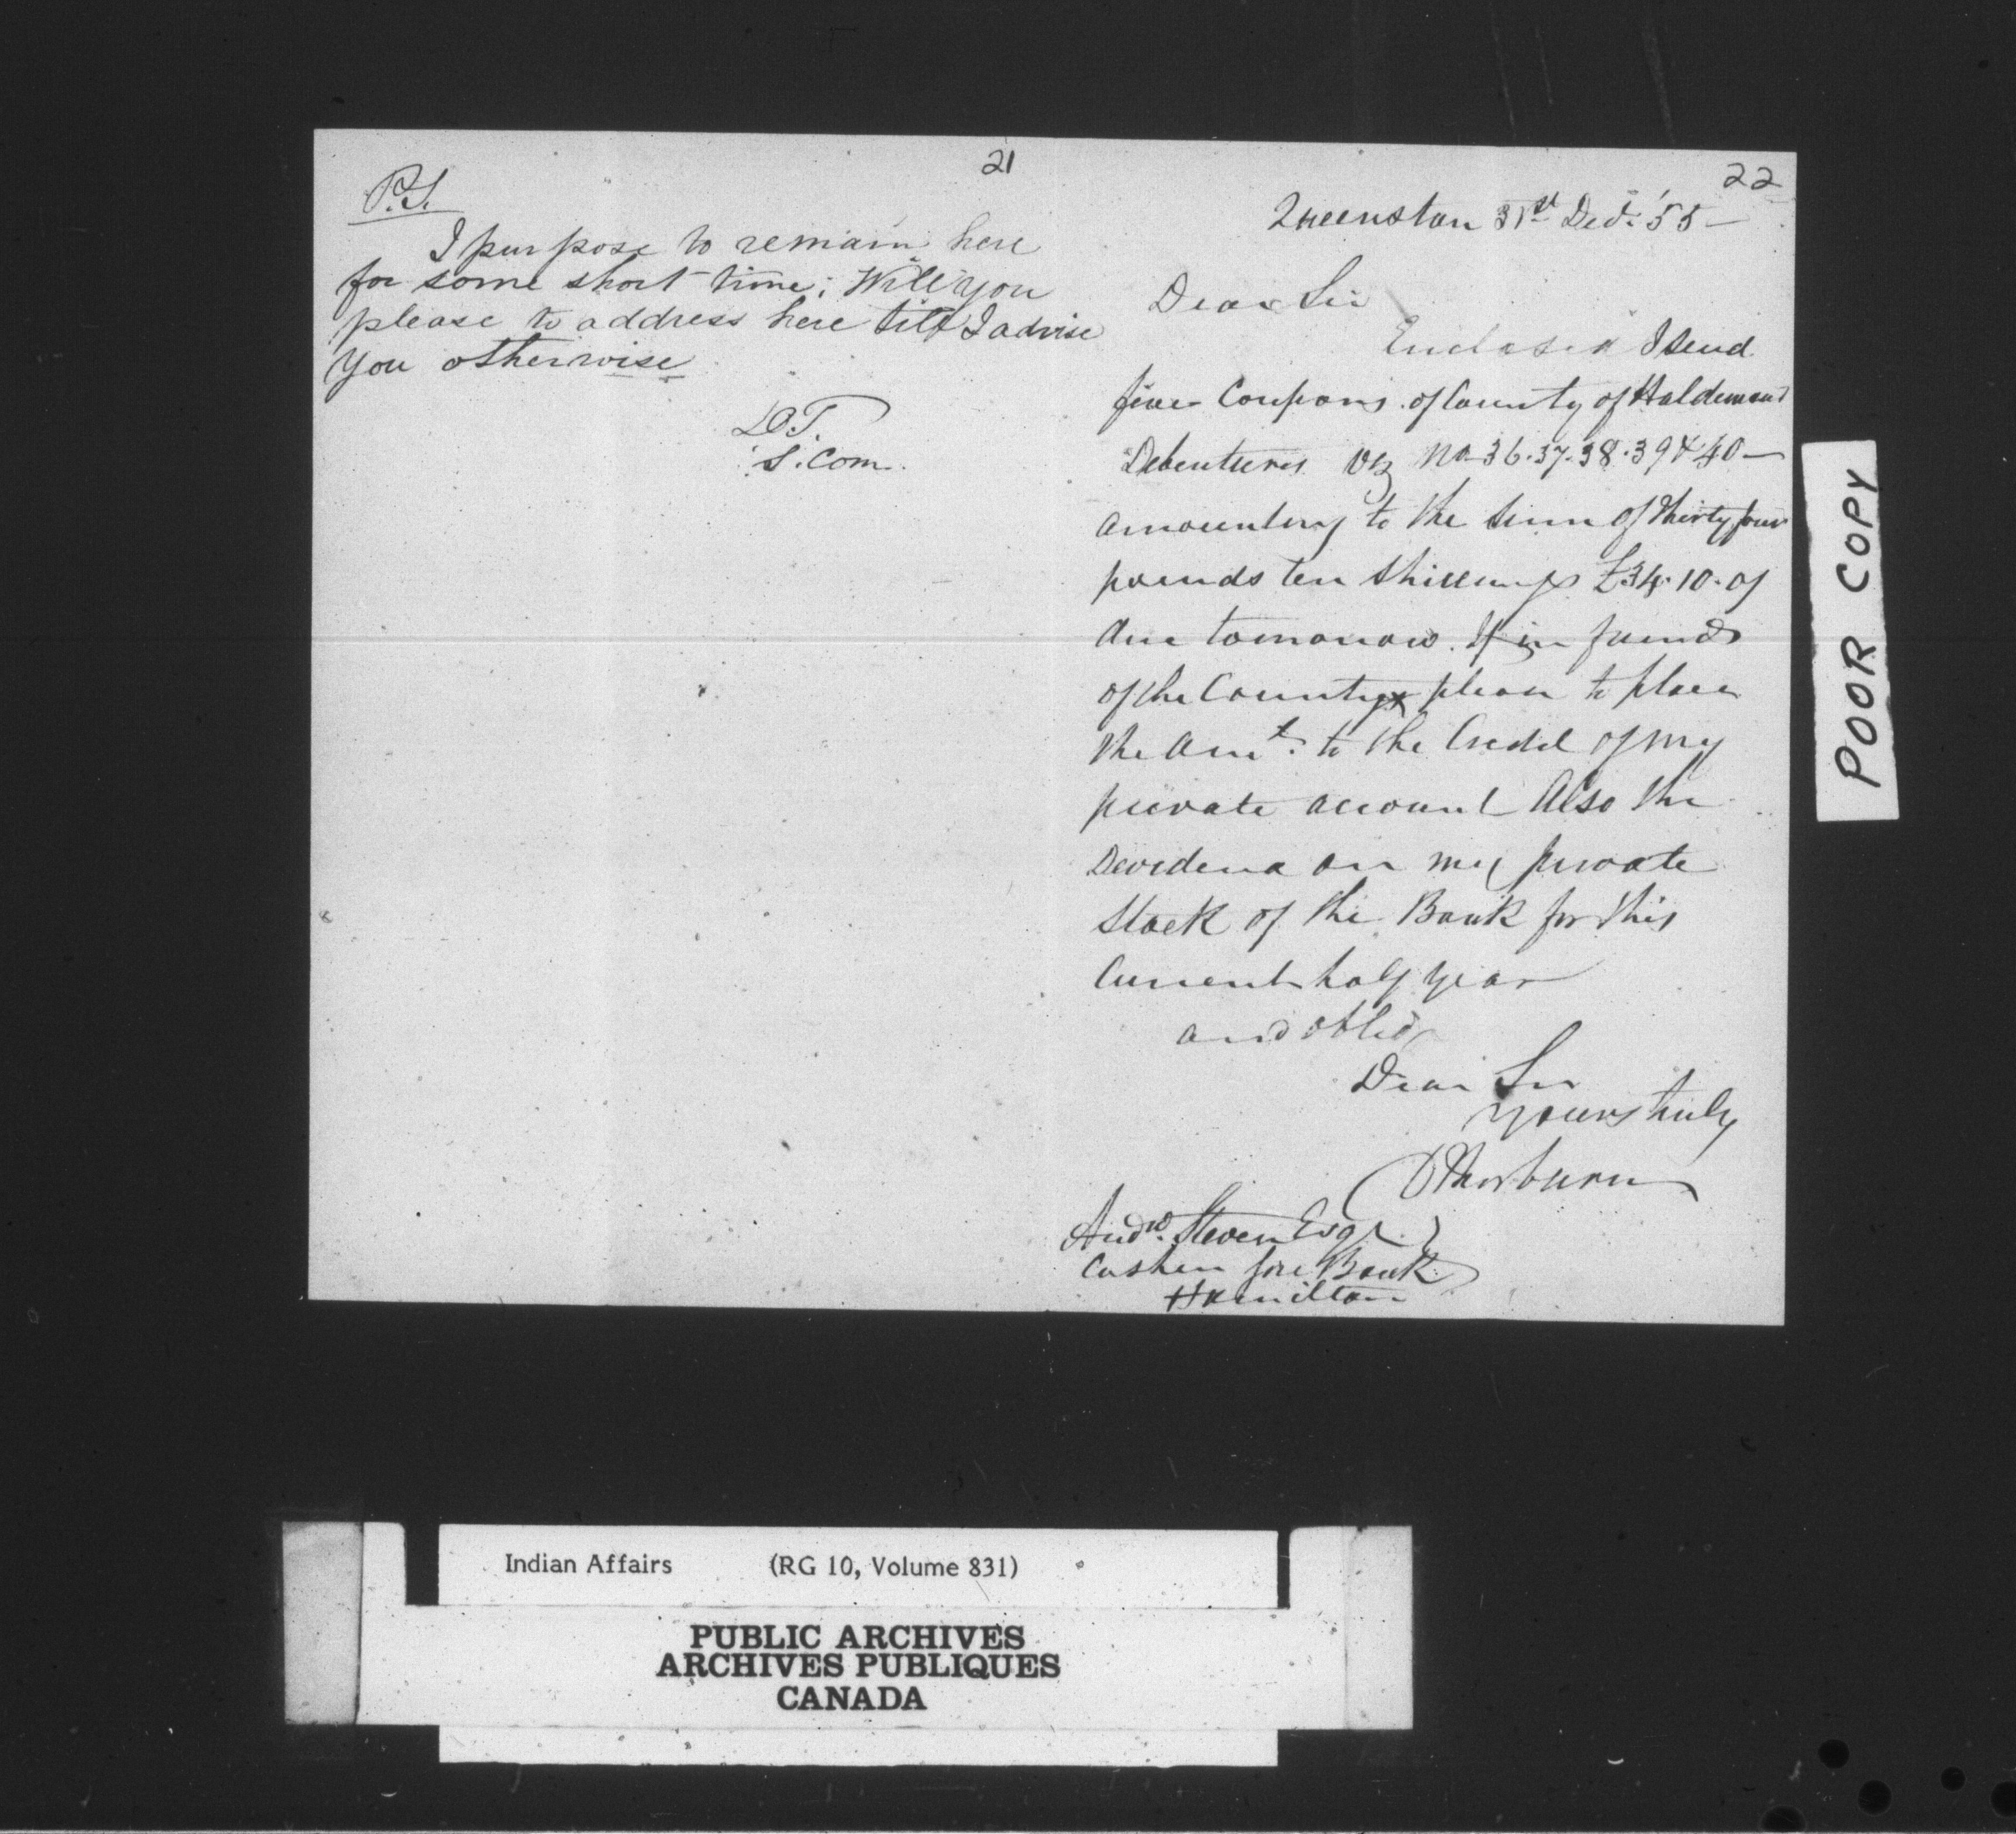 21
P.S.
I purpose to remain here
for some short time; Will you
please to address here till I advise
you otherwise
D.T.
S. Com.
22
Queenston 31st Decr. '55 —
Dear Sir
Enclosed I send
five Coupons of County of Haldimand
Debentures Viz No 36.37.38.39 & 40 —
amounting to the sum of thirty four
pounds ten shillings £34.10.0
due tomorrow. If in funds
of the County please to place
the Amt. to the Credit of my
private account Also the
Devidend on my private
Stock of the Bank for this
Current half year
and oblid
Dear Sir
yours truly
D Thorburn
Andw. Steven Esqr.
Cashier Gore Bank
Hamilton
POOR COPY
Indian Affairs (RG 10, Volume 831)
PUBLIC ARCHIVES
ARCHIVES PUBLIQUES
CANADA